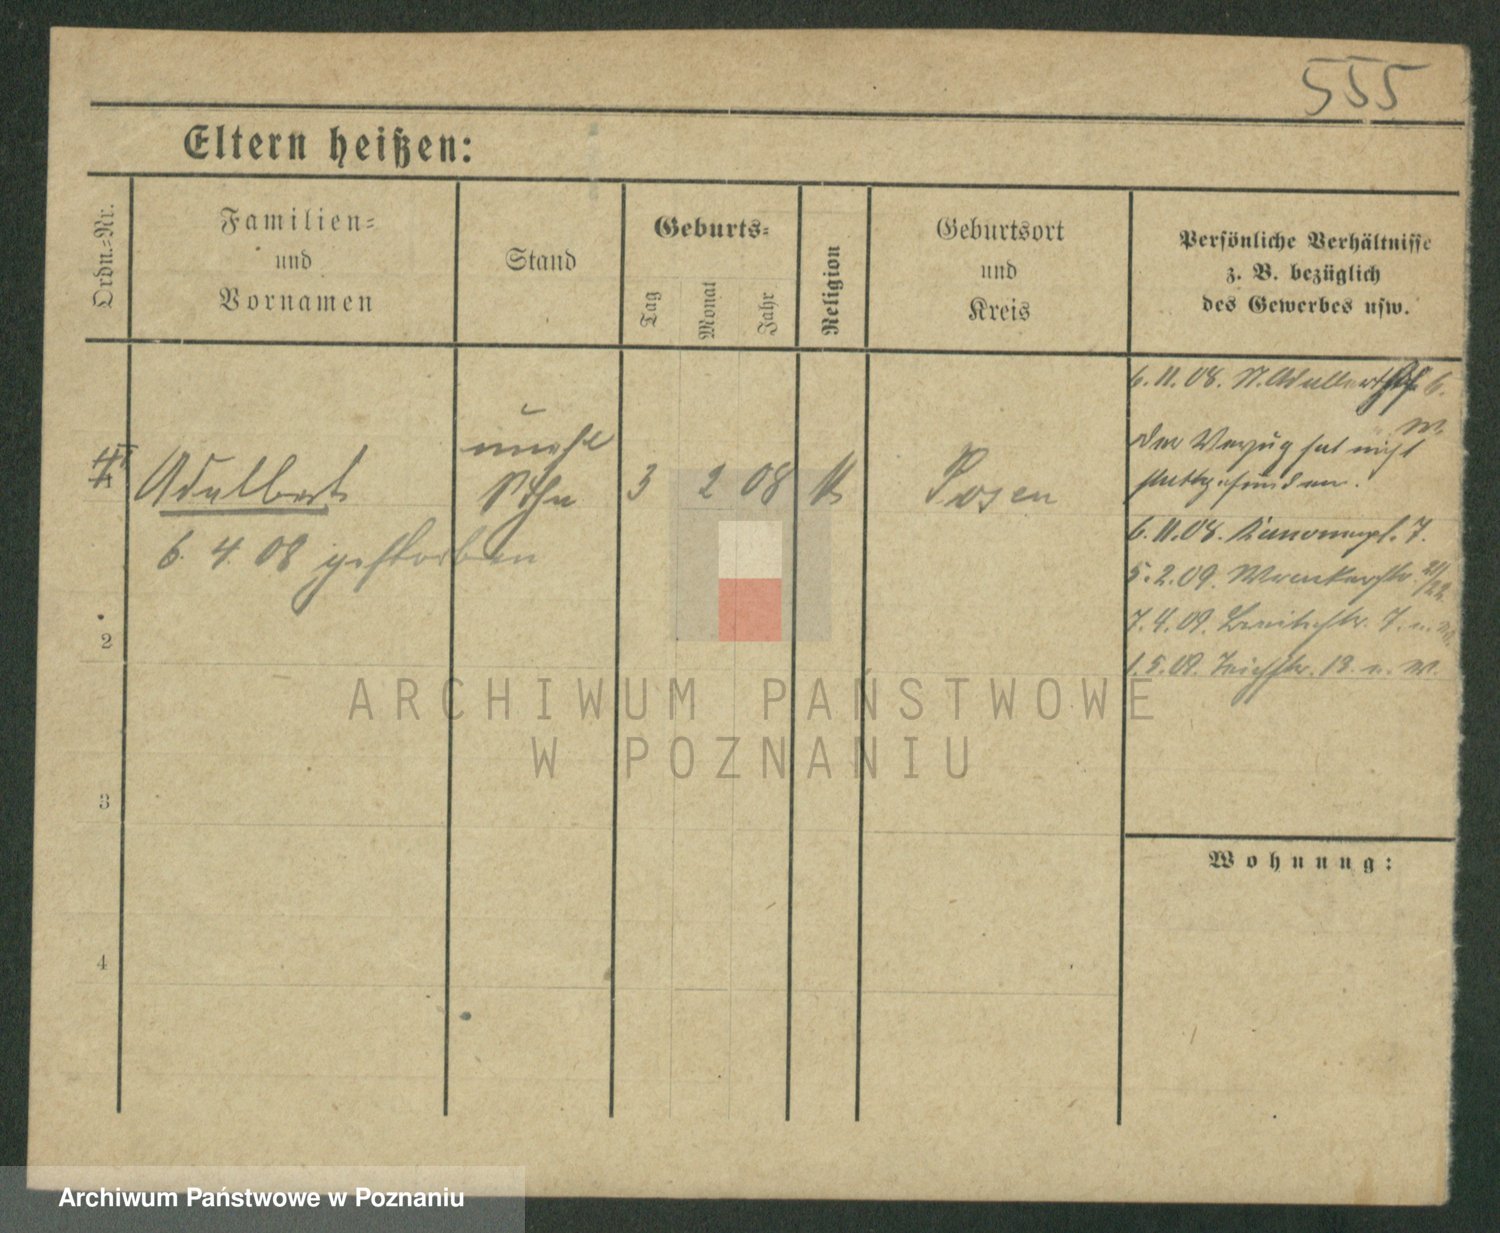 555
Eltern heißen:
Ordn.=Nr.
Familien=
und
Vornamen
Stand
Geburts=
Tag
Monat
Jahr
Religion
Geburtsort
und
Kreis
Persönliche Verhältnisse
z. B. bezüglich
des Gewerbes usw.
6. 11. 08.
Der Verzug hat nicht
stattgefunden.
unehl
Adalbert Sohn 3 2 08 K Posen
6. 4. 08 gestorben
6. 11. 08. Kanonenpl. 7.
5. 2. 09. Wronkerstr. 21/22
2
7. 4. 09. Breitestr. 7.
1. 5. 09. Teichstr. 13. n. W.
ARCHIWUM PAŃSTWOWE
W POZNANIU
3
Wohnung:
4
Archiwum Państwowe w Poznaniu